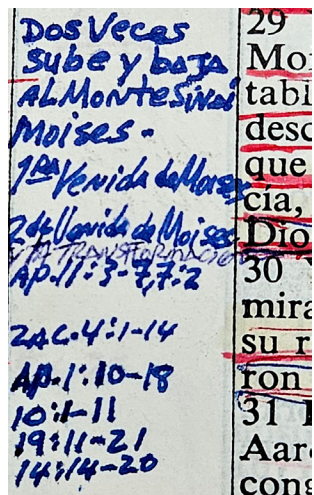 Dos Veces
sube y baja
AL Monte Sinai
Moises -
1ra Venida de Moises
2da Venida de Moises
Y TRANSFORMACION
AP. 11:3-7, 7:2
ZAC. 4:1-14
AP. 1:10-18
10:1-11
19:11-21
14:14-20
29
Moi
tabl
desc
que
cía,
Dio
30 Y
mira
su r
ron
31
Aar
cong